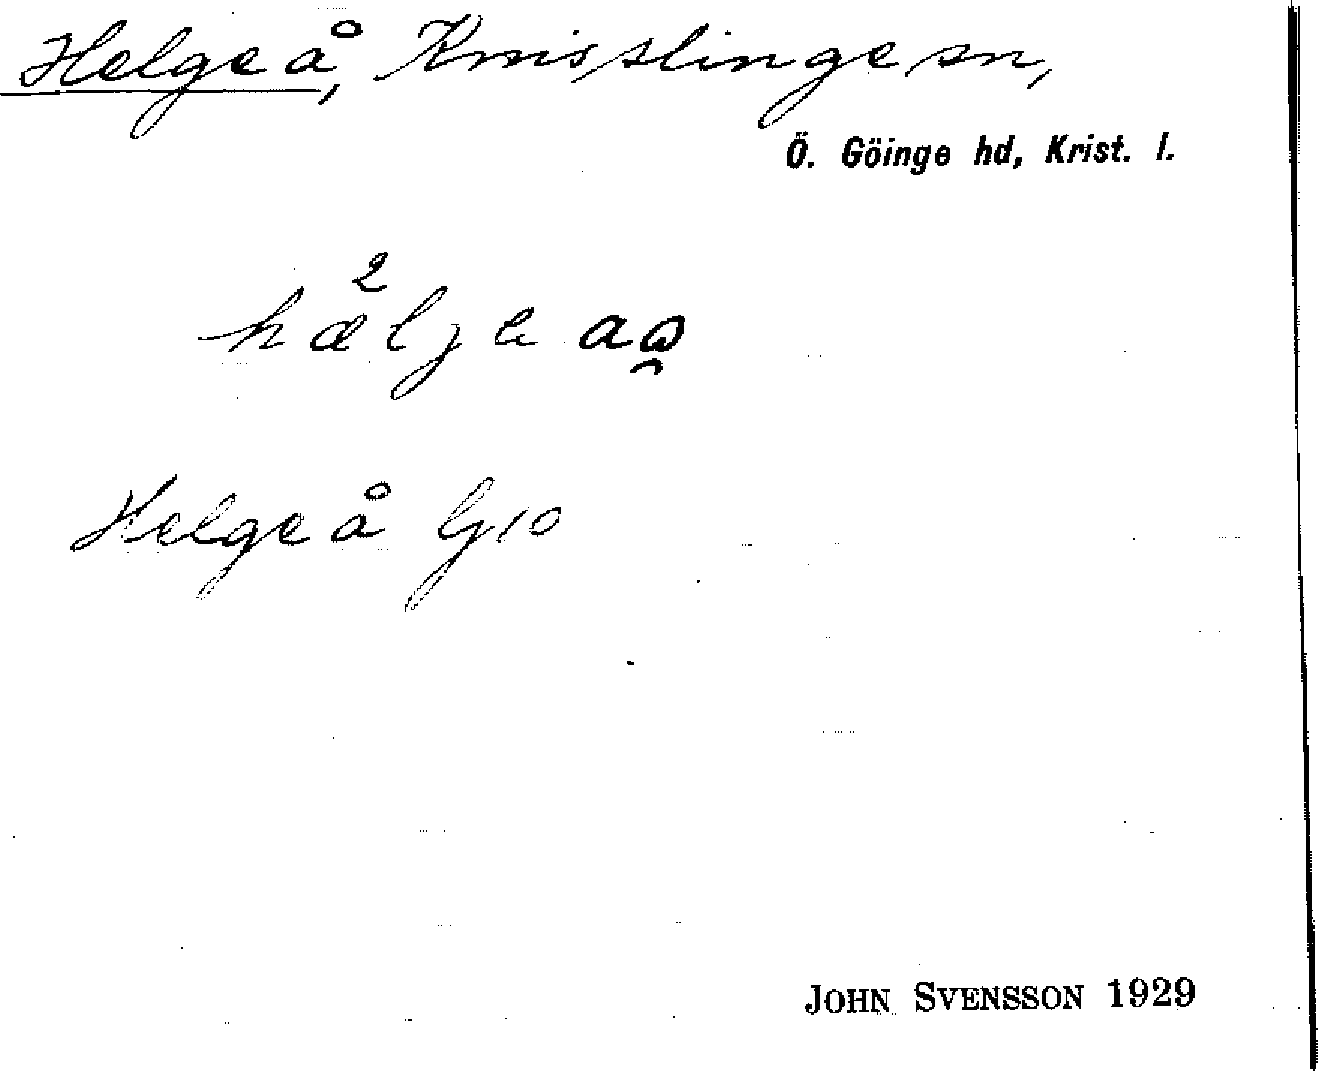 Helgeå, Knisslinge sn,
Ö. Göinge hd, Krist. l.
Helgeå G10
JOHN SVENSSON 1929